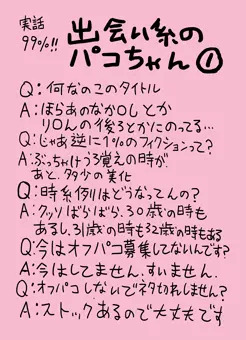 実話
99%!!
出会い系の
パコちゃん①
Q:何なのこのタイトル
A:ほらあのなか〇しとか
り〇んの後ろとかにのってる…
Q:じゃあ逆に1%のフィクションって?
A:ぶっちゃけうろ覚えの時が
あと、多少の美化
Q:時系列はどうなってんの?
A:クッソばらばら、30歳の時も
あるし、31歳の時も32歳の時もある
Q:今はオフパコ募集してないんです?
A:今はしてません、すいません。
Q:オフパコしないでネタ切れしません?
A:ストックあるので大丈夫です